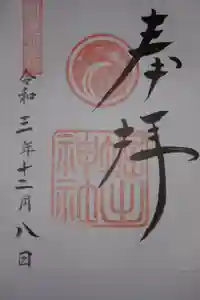 奉拝
令和三年十二月八日